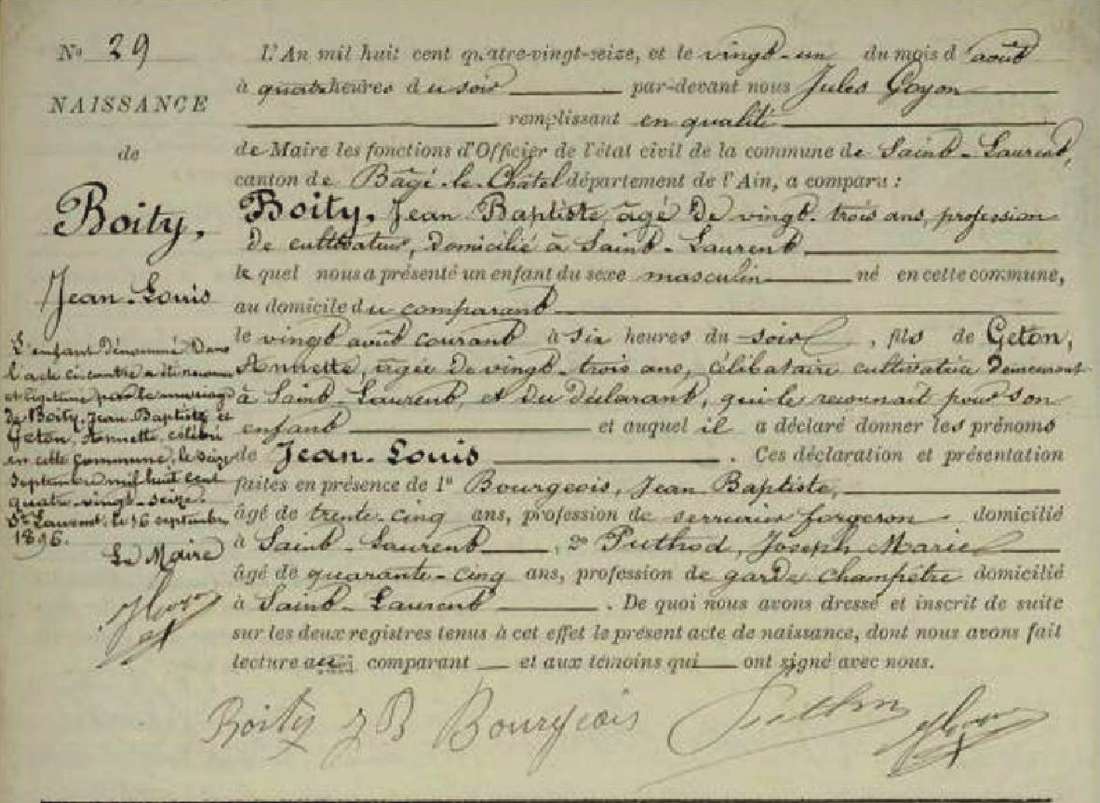 No 29
NAISSANCE
de
Boity,
Jean-Louis
L'enfant dénommé dans
l'acte ci-contre a été reconnu
et légitimé par le mariage
de Boity, Jean Baptiste et
Geton, Annette, célébré
en cette commune, le seize
septembre mil huit cent
quatre-vingt-seize.
St Laurent, le 16 septembre
1896.
Le Maire
L'An mil huit cent quatre-vingt-seize, et le vingt-un du mois d'août
à quatre heures du soir par-devant nous Jules Goyon
remplissant en qualité
de Maire les fonctions d'Officier de l'état civil de la commune de Saint-Laurent,
canton de Bâgé-le-Châtel département de l'Ain, a comparu :
Boity, Jean Baptiste, âgé de vingt-trois ans, profession
de cultivateur, domicilié à Saint-Laurent
le quel nous a présenté un enfant du sexe masculin né en cette commune,
au domicile du comparant
le vingt août courant à six heures du soir, fils de Geton,
Annette, âgée de vingt-trois ans, célibataire cultivatrice demeurant
à Saint-Laurent, et du déclarant, qui le reconnait pour son
enfant et auquel il a déclaré donner les prénoms
de Jean-Louis. Ces déclaration et présentation
faites en présence de 1o Bourgeois, Jean Baptiste,
âgé de trente-cinq ans, profession de serrurier forgeron domicilié
à Saint-Laurent, 2o Puthod, Joseph Marie
âgé de quarante-cinq ans, profession de garde champêtre domicilié
à Saint-Laurent. De quoi nous avons dressé et inscrit de suite
sur les deux registres tenus à cet effet le présent acte de naissance, dont nous avons fait
lecture au comparant et aux témoins qui ont signé avec nous.
Boity J B Bourgeois